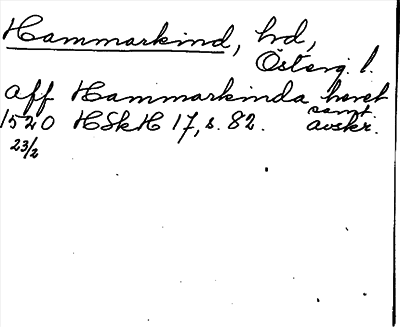 Hammarkind, hd,
Österg. l.
aff Hammarkinda heret
1520 HSkH 17, s. 82. samt. avskr.
23/2